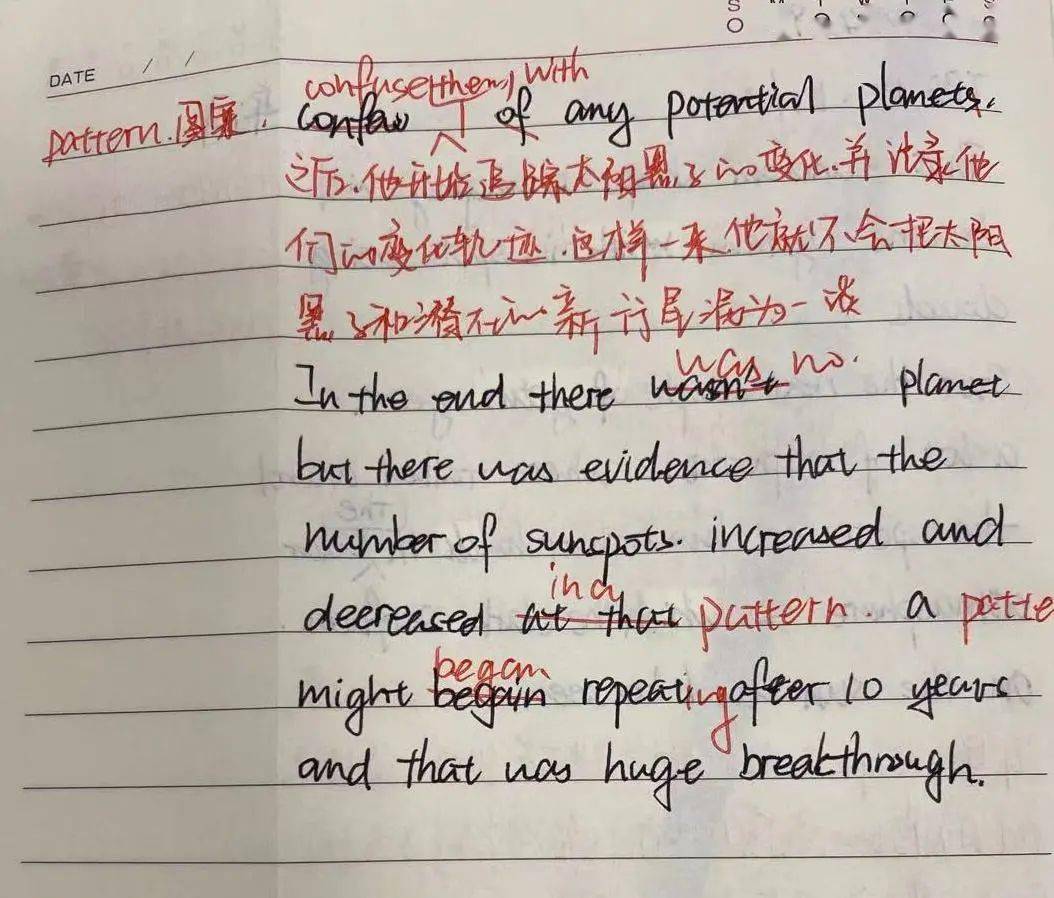 S
O
DATE / /
confuse (them) with
pattern. 图案. of any potential planets.
之后, 他开始追踪太阳黑子的变化. 并记录他
们的变化轨迹. 这样一来, 他就不会把太阳
黑子和潜在的新行星混为一谈
was no.
In the end there wasn't planet
but there was evidence that the
number of sunspots. increased and
in a
decreased at that pattern. a patte
began
might begain repeating after 10 years
and that was huge breakthrough.